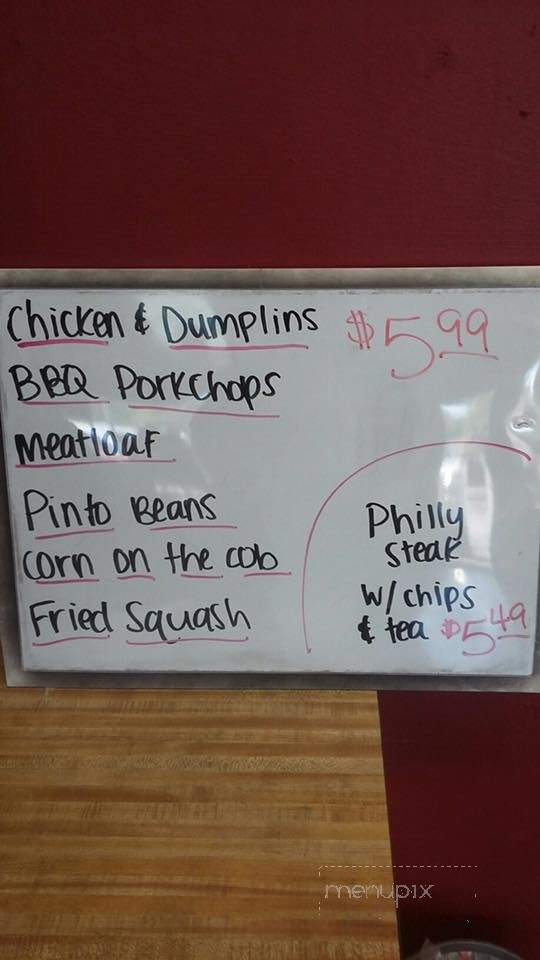 Chicken & Dumplins $5.99
BBQ Porkchops
Meatloaf
Pinto Beans
Corn on the cob
Fried Squash
Philly
Steak
w/ chips
& tea $5.49
menupix